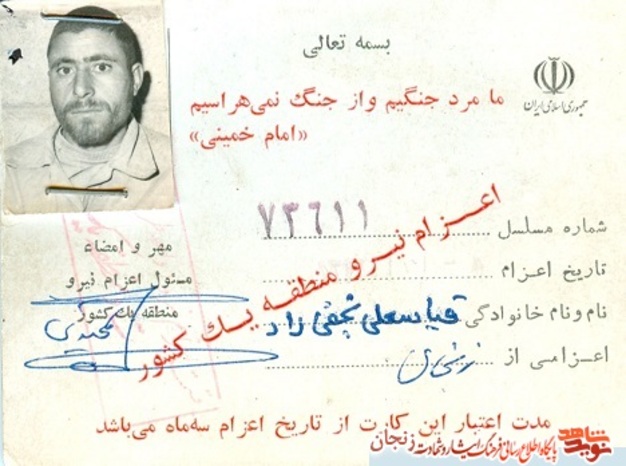 بسمه تعالی
جمهوری اسلامی ایران
ما مرد جنگیم و از جنگ نمی‌هراسیم
«امام خمینی»
شماره مسلسل ۷۳۶۱۱
تاریخ اعزام
نام و نام خانوادگی قیاسعلی نجفی راد
اعزامی از
اعزام نیرو منطقه یک کشور
مهر و امضاء
مسئول اعزام نیرو
منطقه یک کشور
مدت اعتبار این کارت از تاریخ اعزام سه‌ماه می‌باشد
نوید شاهد
پایگاه اطلاع رسانی فرهنگ ایثار و شهادت زنجان